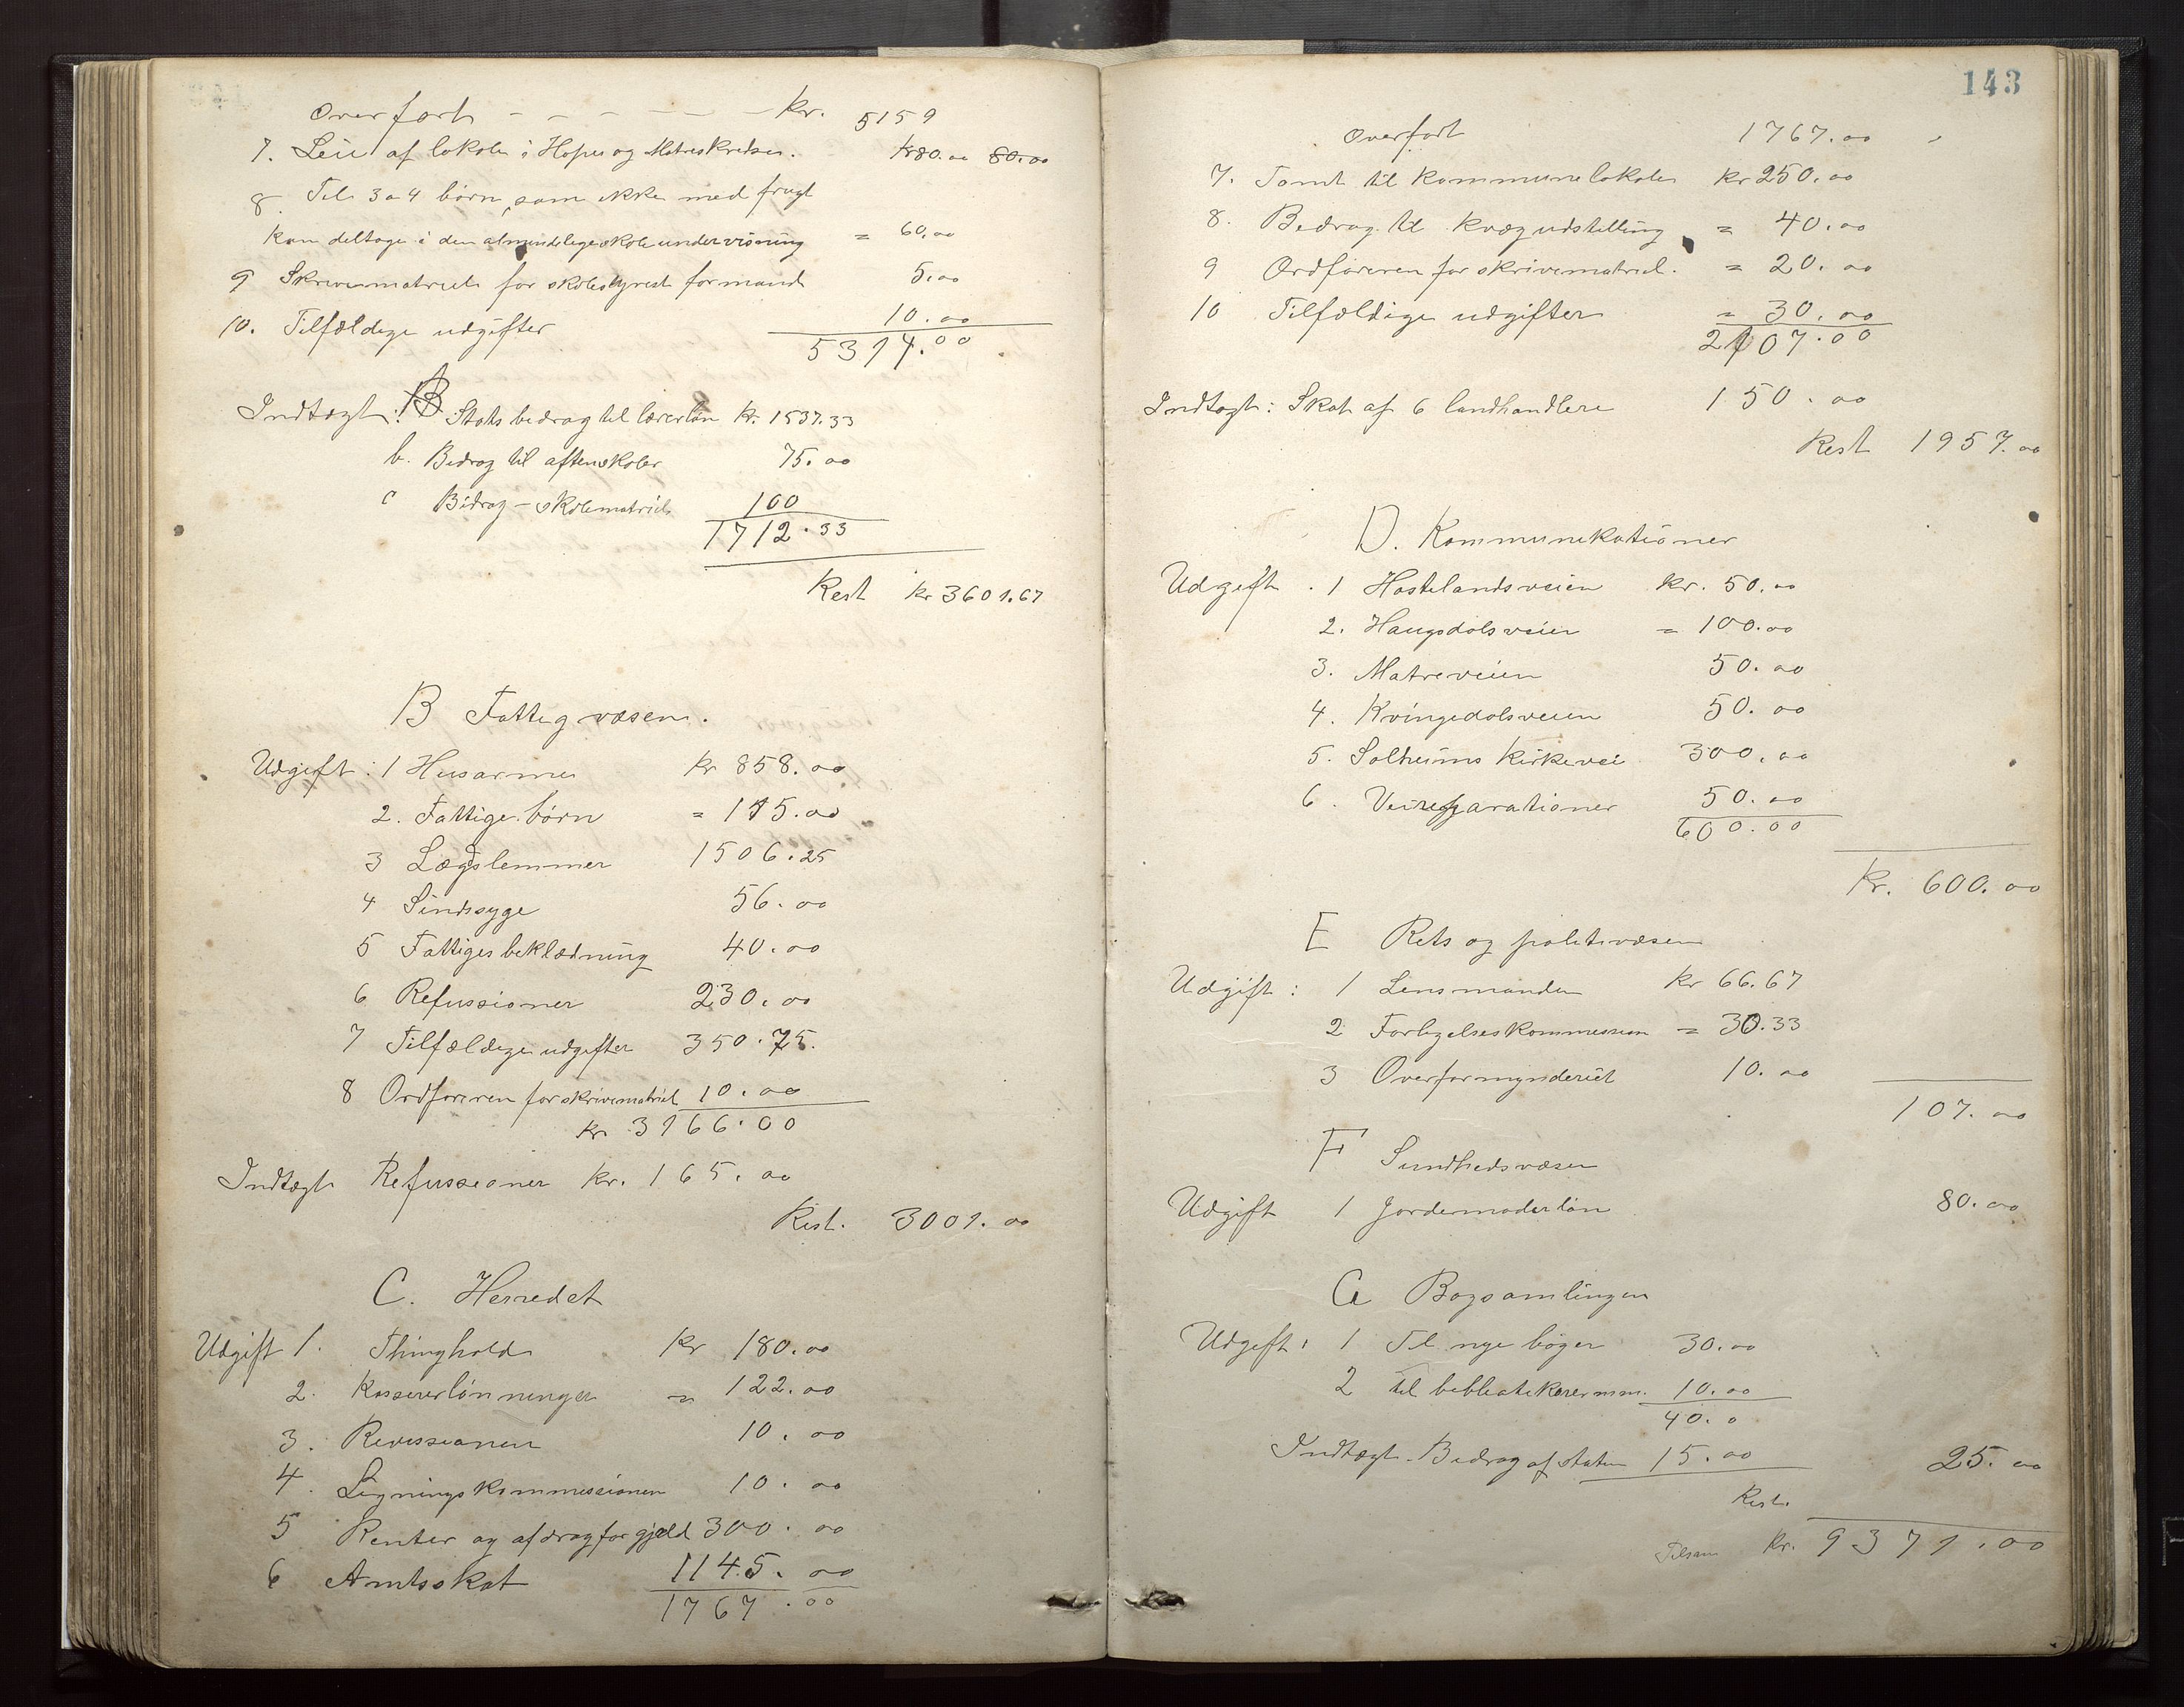 Overført - - - - - kr. 5159
7. Leie af lokale i Hope og Matreskredsen. kr 80.00 80.00
8. Til 3 a 4 børn, som ikke med frugt
kan deltage i den almindelige skoleundervisning = 60.00
9 Skrivematriel for skolestyrest formand 5.00
10. Tilfældige udgifter 10.00
5314.00
Indtægt: Statsbedrag til lærerløn kr. 1537.33
b. Bedrag til aftenskoler 75.00
c Bidrag - skolematriel 100
1712.33
Rest kr 3601.67
B Fattigvæsen.
Udgift: 1 Husarme kr 858.00
2. Fattige børn = 115.00
3 Lægslemmer 1506.25
4 Sindssyge 56.00
5 Fattiges beklædning 40.00
6 Refussioner 230.00
7 Tilfældige udgifter 350.75.
8 Ordføreren for skrivematriel 10.00
kr 3166.00
Indtægt Refussioner kr. 165.00
Rest. 3001.00
C. Herredet
Udgift 1. Thinghold kr 180.00
2. Kassererlønninger = 122.00
3. Revissionen 10.00
4. Ligningskommissionen 10.00
5 Renter og afdrag for gjæld 300.00
6 Amtsskat 1145.00
1767.00
143
Overført 1767.00
7. Tomt til kommunelokale kr 250.00
8. Bedrag til kvægudstilling = 40.00
9 Ordføreren for skrivematriel. = 20.00
10 Tilfældige udgifter = 30.00
2107.00
Indtægt: Skat af 6 landhandlere 150.00
Rest 1957.00
D. Kommunikationer
Udgift. 1 Hostelandsveien kr. 50.00
2. Haugsdalsveien = 100.00
3. Matreveien 50.00
4. Kvingedalsveien 50.00
5. Solheims kirkevei 300.00
6. Veireparationer 50.00
600.00
kr. 600.00
E Rets og politivæsen
Udgift: 1 Lensmanden kr 66.67
2 Forligelseskommission = 30.33
3 Overformynderiet 10.00
107.00
F Sundhedsvæsen
Udgift 1 Jordemoderløn 80.00
G Bogsamlingen
Udgift: 1 Til nye bøger 30.00
2 til bibliotekeren m.m. 10.00
40.0
Indtægt. Bedrag af staten 15.00 25.00
Rest.
Tilsam kr. 9371.00